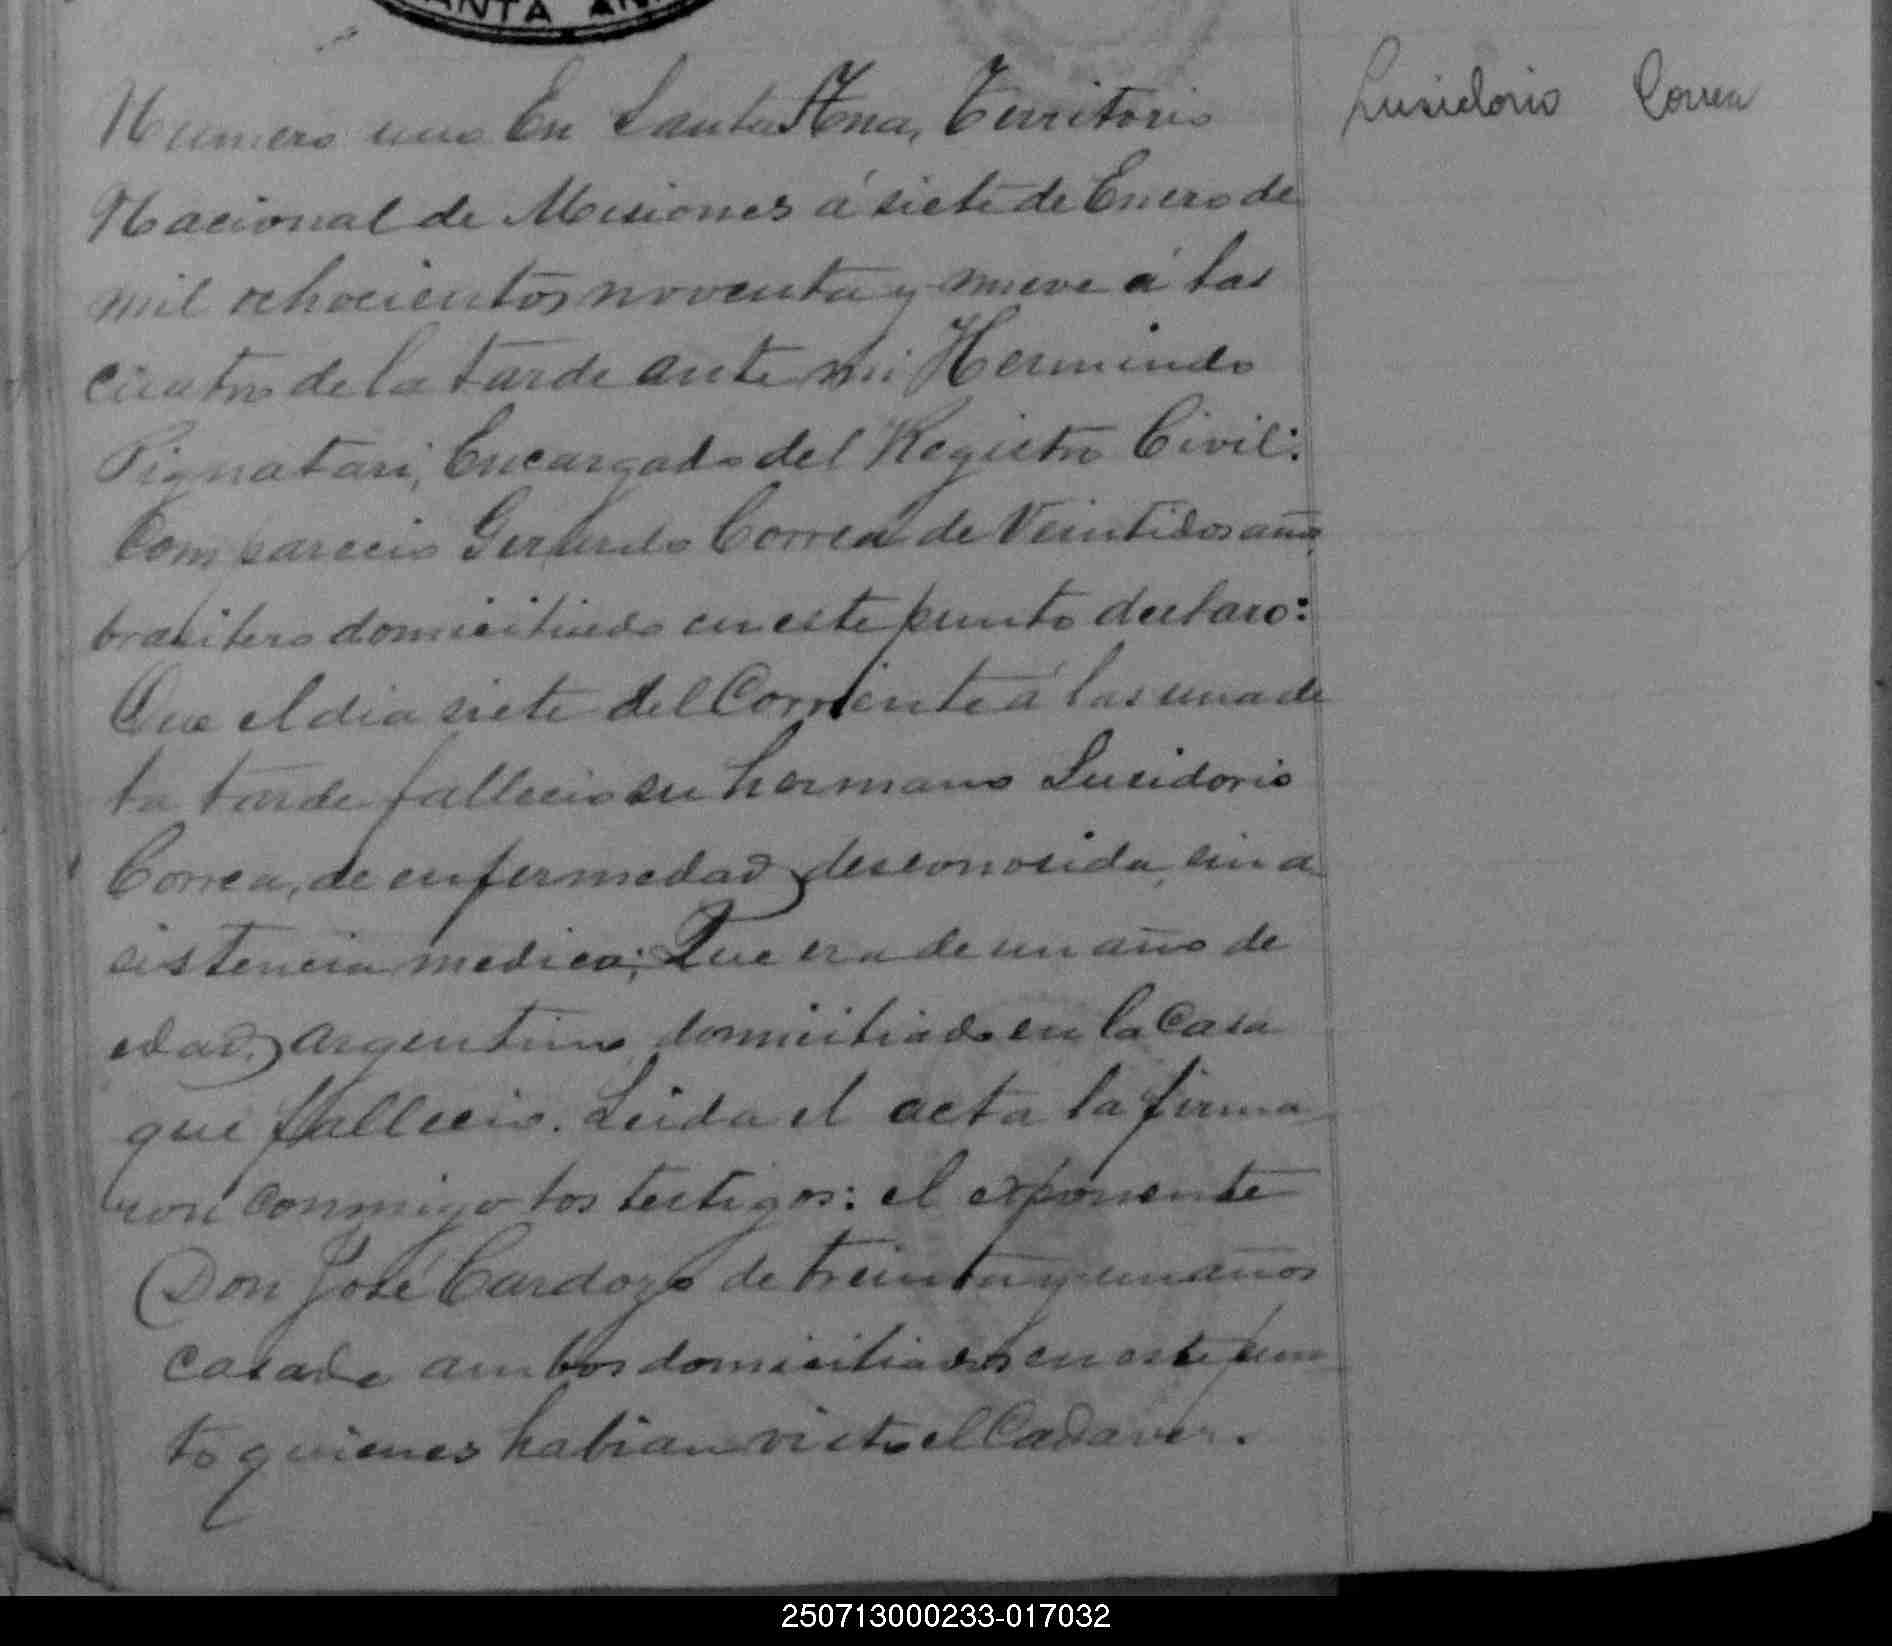 SANTA AN
Numero uno En Santa Ana, Territorio
Lusidorio Correa
Nacional de Misiones á siete de Enero de
mil ochocientos noventa y nueve á las
cuatro de la tarde ante mi Hermindo
Pignatari, Encargado del Registro Civil:
Comparecio Gerardo Correa de Veintidos años
brasilero domiciliado en este punto declaro:
Que el dia siete del Corriente á las una de
la tarde fallecio su hermano Lusidorio
Correa, de enfermedad desconosida, sin a
sistencia medica; Que era de un año de
edad, argentino domiciliado en la Casa
que fallecio. Leida el acta la firma
ron conmigo los testigos: el exponente
Don José Cardozo de treinta y un años
casado ambos domiciliados en este pun
to quienes habian visto el Cadaver.
250713000233-017032